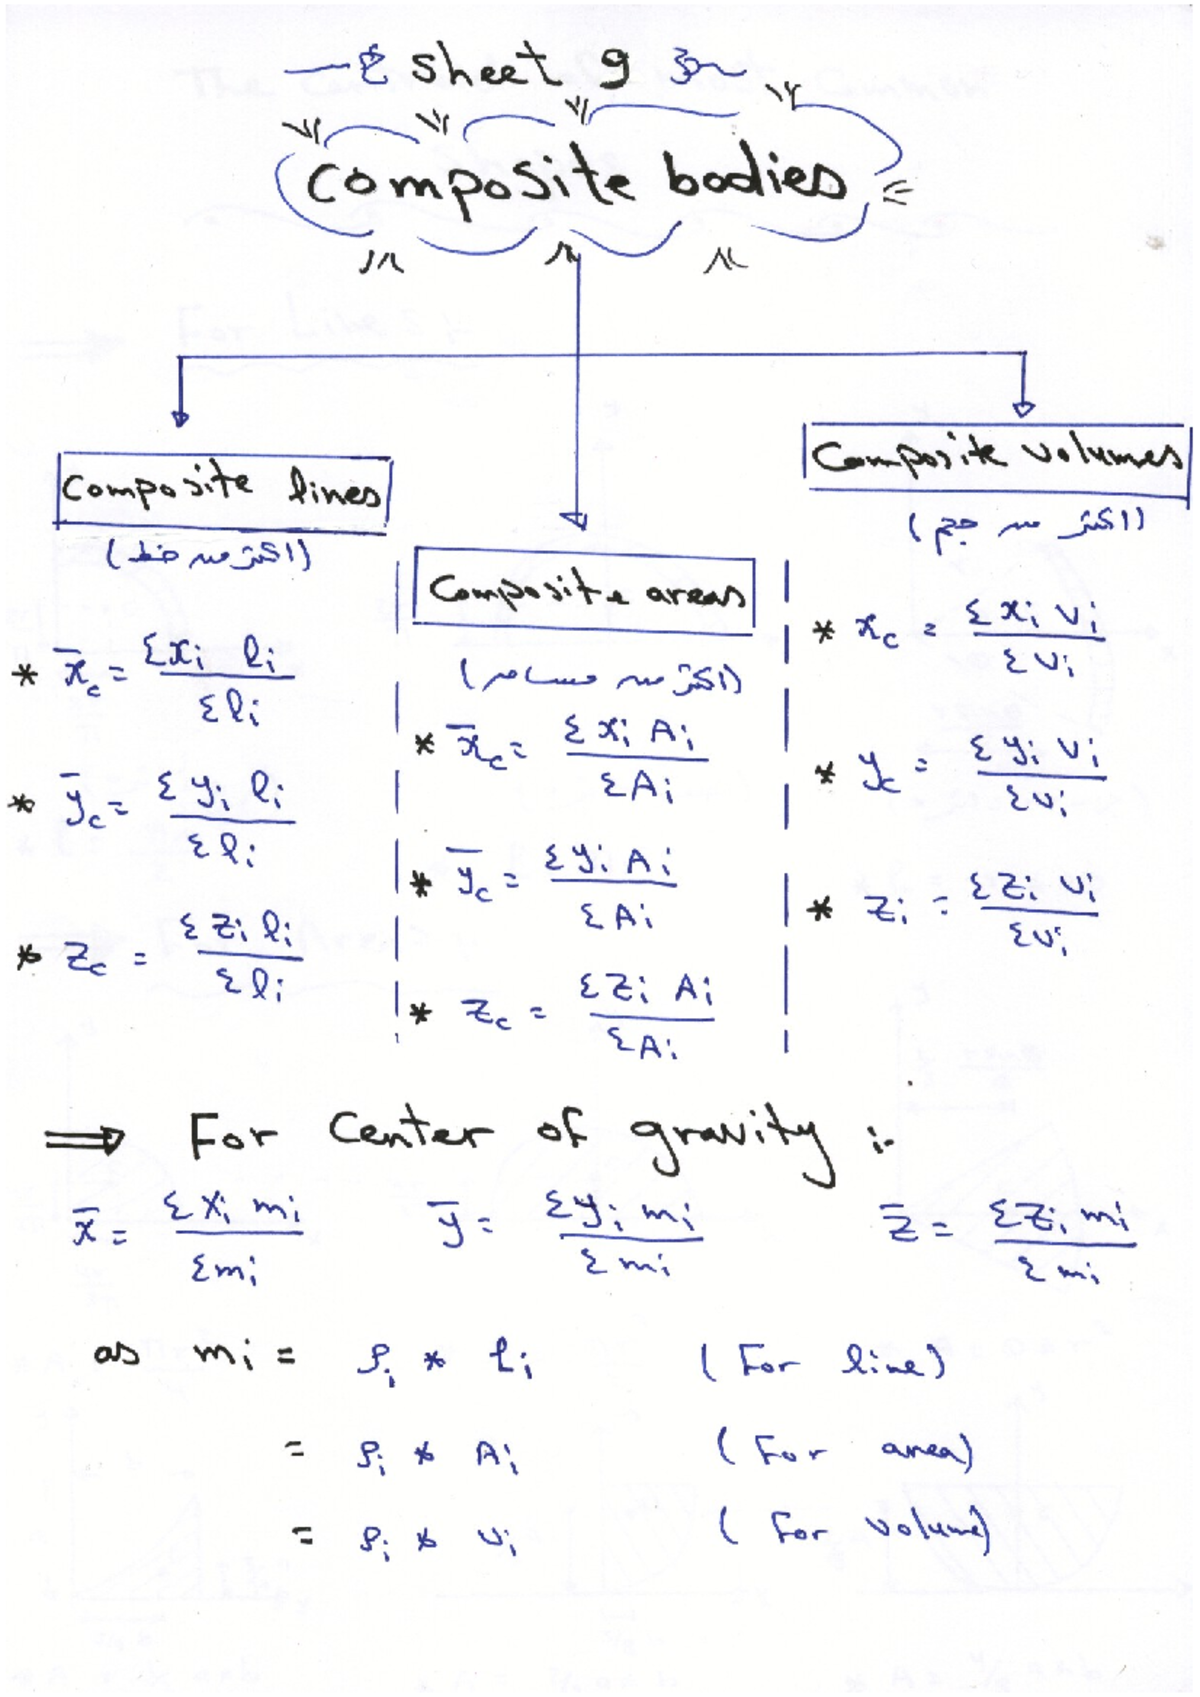 sheet 9
Composite bodies
Composite lines
(اكتر من خط)
* x̄c = Σxi li / Σli
* ȳc = Σyi li / Σli
* zc = Σzi li / Σli
Composite areas
(اكتر من مساحه)
* x̄c = Σxi Ai / ΣAi
* ȳc = Σyi Ai / ΣAi
* zc = Σzi Ai / ΣAi
Composite volumes
(اكتر من حجم)
* xc = Σxi vi / Σvi
* yc = Σyi vi / Σvi
* zi = Σzi vi / Σvi
⇒ For Center of gravity :-
x̄ = Σxi mi / Σmi ȳ = Σyi mi / Σmi z̄ = Σzi mi / Σmi
as mi = ρi * Li (For line)
= ρi * Ai (For area)
= ρi * vi (For volume)